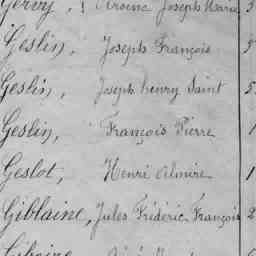 Gervy, Joseph Marie 3
Geslin, Joseph François 3
Geslin, Joseph Henry Saint 5
Geslin, François Pierre 1
Geslot, Henri Almire 1
Giblaine, Jules Frédéric François 2